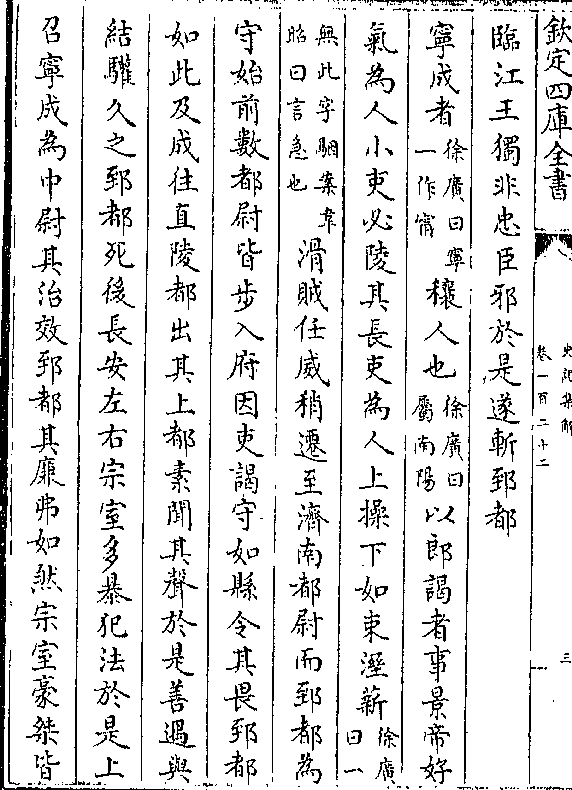 欽定四庫全書
史記集解
卷一百二十二
三
臨江王獨非忠臣邪於是遂斬郅都
寧成者徐廣曰寧一作甯穰人也徐廣曰屬南陽以郎謁者事景帝好
氣為人小吏必陵其長吏為人上操下如束溼薪徐廣曰一
無此字駰案韋昭曰言急也滑賊任威稍遷至濟南都尉而郅都為
守始前數都尉皆步入府因吏謁守如縣令其畏郅都
如此及成往直陵都出其上都素聞其聲於是善遇與
結驩久之郅都死後長安左右宗室多暴犯法於是上
召寧成為中尉其治效郅都其廉弗如然宗室豪桀皆